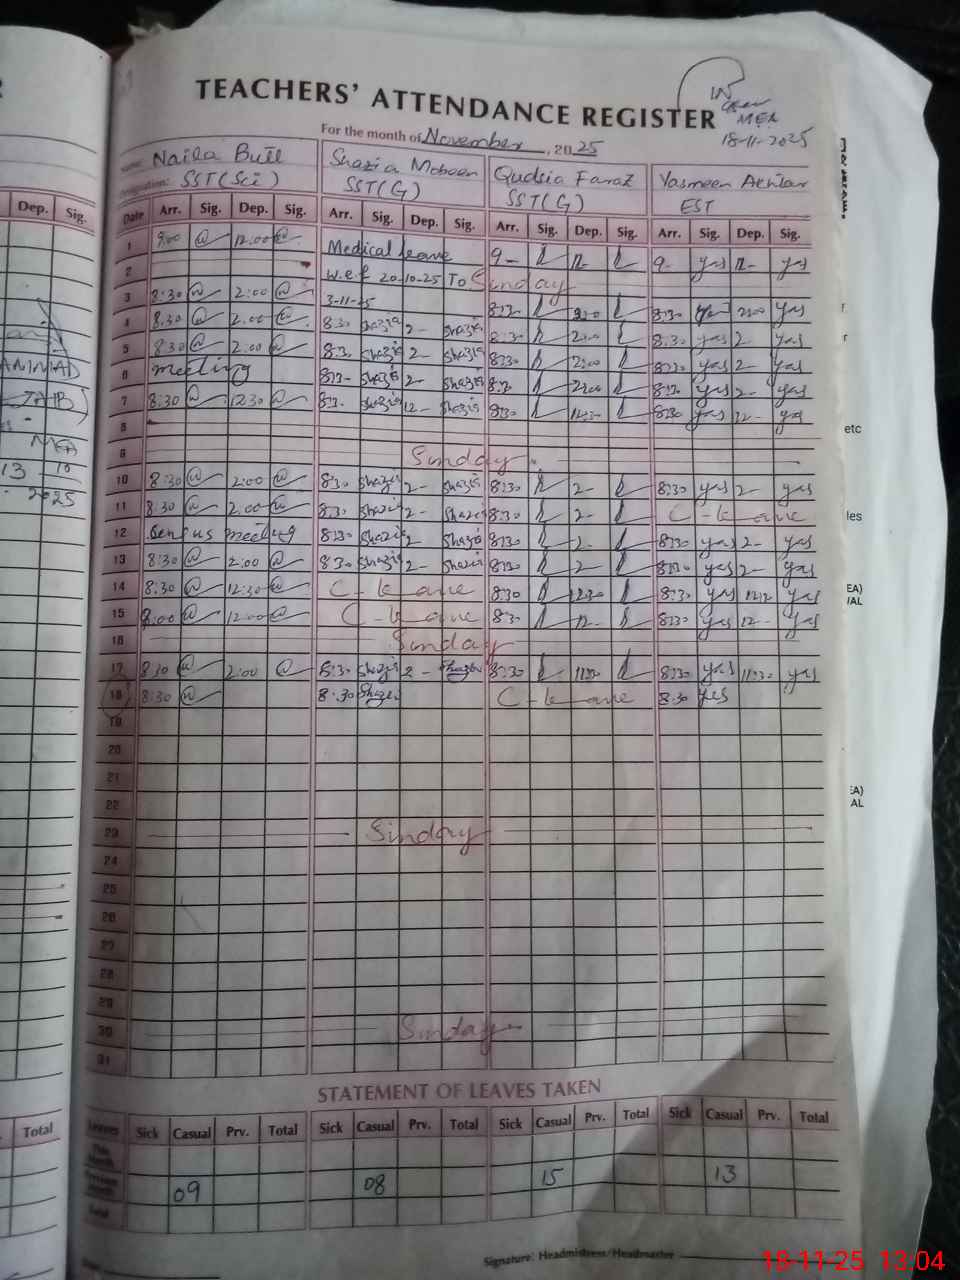 TEACHERS' ATTENDANCE REGISTER
IN
MEA
18-11-2025
For the month of November, 2025
Naila Butt Shazia Mobeen Qudsia Faraz Yasmeen Akhtar
Designation: SST(Sci) SST(G) SST(G) EST
Date Arr. Sig. Dep. Sig. Arr. Sig. Dep. Sig. Arr. Sig. Dep. Sig. Arr. Sig. Dep. Sig.
1 9:00 12:00 Medical leave 9- 12- 9- yas 12- yas
2 w.e.f 20-10-25 To Sunday
3 8:30 2:00 3-11-25 8:30 2:00 8:30 yas 2:00 yas
4 8:30 2:00 8:30 Shazia 2- Shazia 8:30 2:00 8:30 yas 2- yas
5 8:30 2:00 8:30 Shazia 2- Shazia 8:30 2:00 8:30 yas 2- yas
6 meeting 8:30 Shazia 2- Shazia 8:30 2:00 8:30 yas 2- yas
7 8:30 12:30 8:30 Shazia 12- Shazia 8:30 12:30 8:30 yas 12- yas
8
9 Sunday
10 8:30 2:00 8:30 Shazia 2- Shazia 8:30 2- 8:30 yas 2- yas
11 8:30 2:00 8:30 Shazia 2- Shazia 8:30 2- C-Leave
12 Census meeting 8:30 Shazia 2- Shazia 8:30 2- 8:30 yas 2- yas
13 8:30 2:00 8:30 Shazia 2- Shazia 8:30 2- 8:30 yas 2- yas
14 8:30 12:30 C-Leave 8:30 12:30 8:30 yas yas
15 8:00 12:00 C-Leave 8:30 12- 8:30 yas 12- yas
16 Sunday
17 8:30 2:00 8:30 Shazia 2- Shazia 8:30 11:30 8:30 yas 11:30 yas
18 8:30 8:30 Shazia C-Leave 8:30 yas
19
20
21
22
23 Sunday
24
25
26
27
28
29
30 Sunday
31
STATEMENT OF LEAVES TAKEN
Leaves Sick Casual Prv. Total Sick Casual Prv. Total Sick Casual Prv. Total Sick Casual Prv. Total
This Month
Previous Month 09 08 15 13
Total
Signature: Headmistress/Headmaster
Dep. Sig.
MEA
13 10
2025
Total
etc
les
EA)
IAL
EA)
AL
18-11-25 13:04